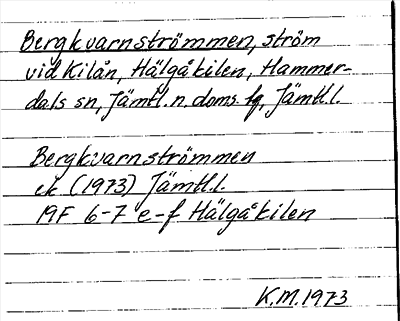 Bergkvarnströmmen, ström
vid Kilån, Hälgåkilen, Hammer-
dals sn, Jämtl. n. doms. fg, Jämtl. l.
Bergkvarnströmmen
ek (1973) Jämtl. l.
19F 6-7 e-f Hälgåkilen
K.M. 1973